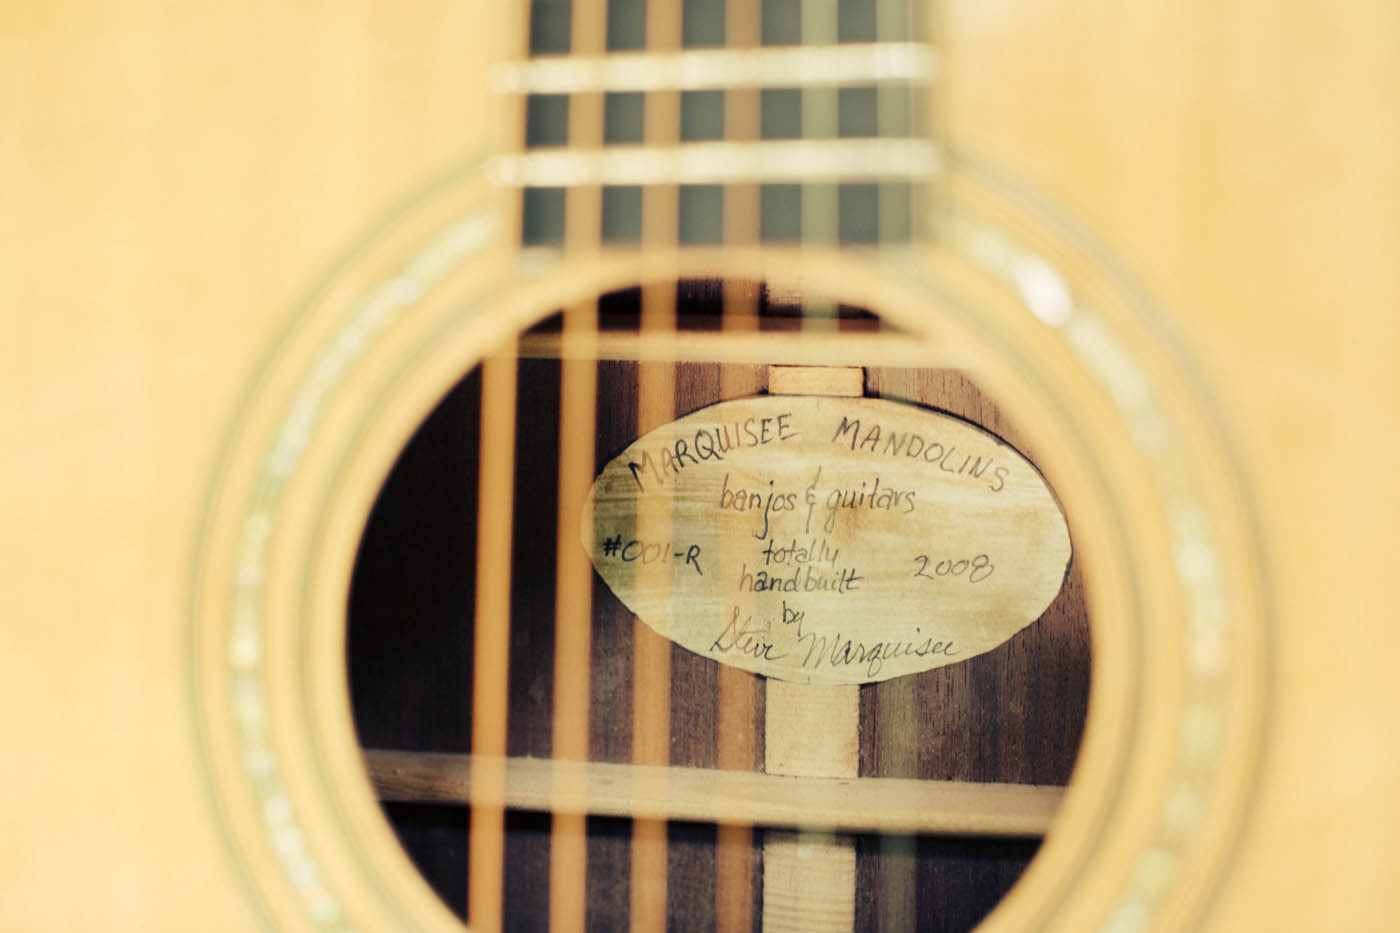 MARQUISEE MANDOLINS
banjos & guitars
#001-R totally 2008
handbuilt
by
Steve Marquisee